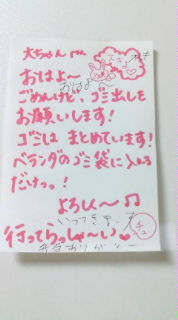 大ちゃんへ
おはよ〜
おはよ〜
ごめんけど、ゴミ出しを
お願いします!
ゴミは まとめています!
ベランダのゴミ袋に入れる
だけっ!
よろしく〜♫
いってきまーす
行ってらっしゃ〜い
チュ